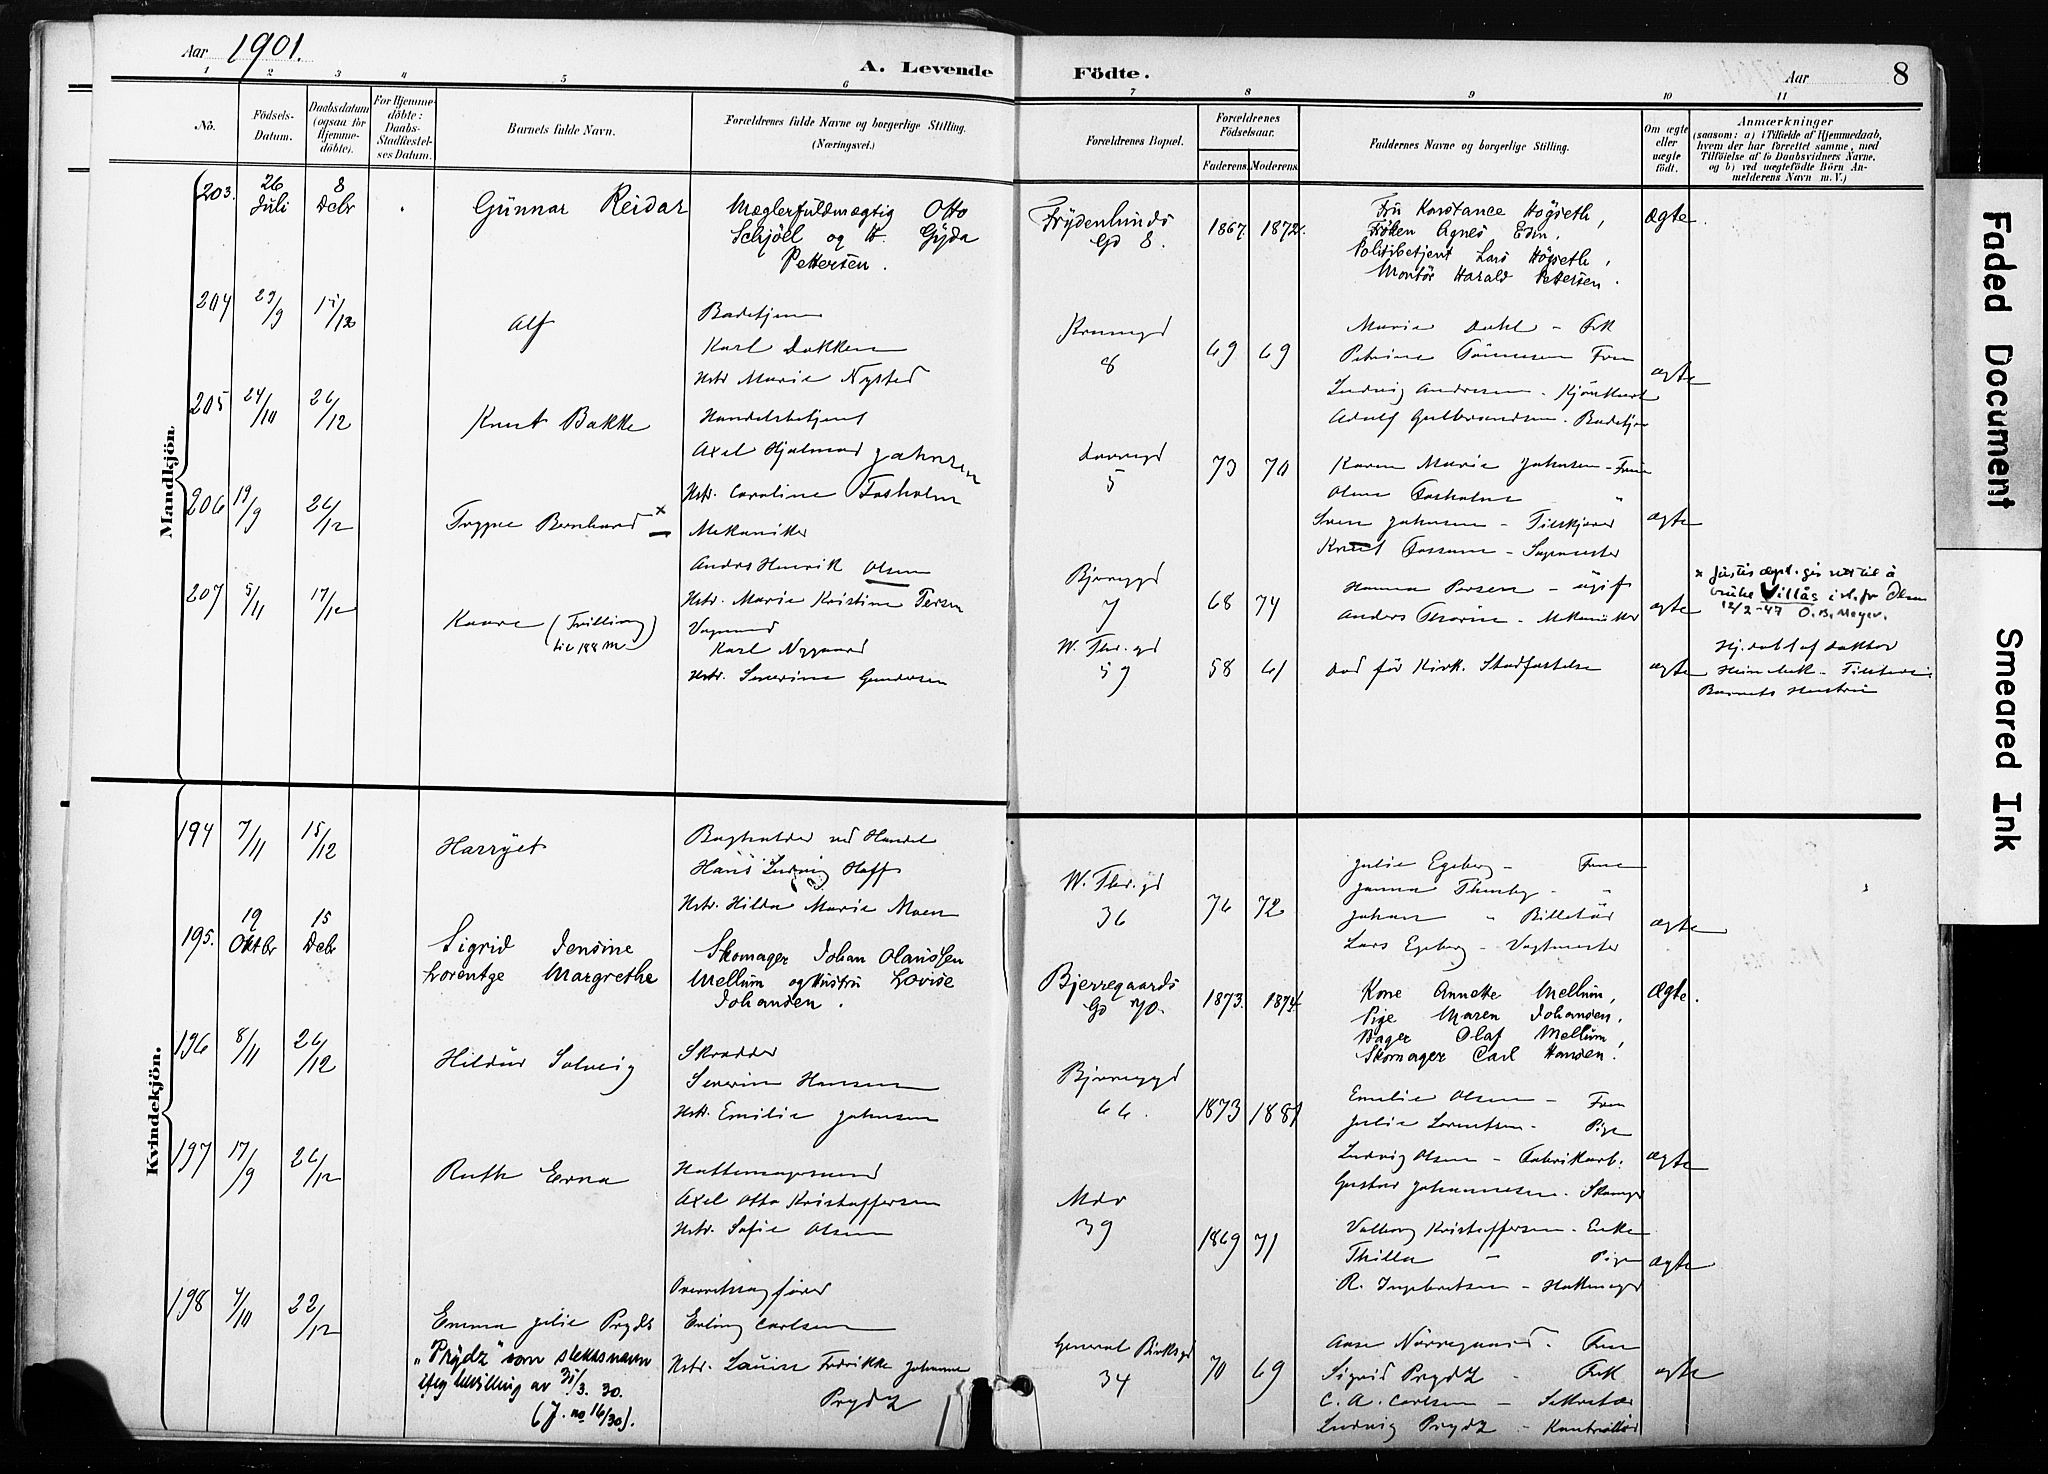 Aar 1901.
A. Levende Födte.
Aar 8
1 2 3 4 5 6 7 8 9 10 11
No.
Födsels-Datum.
Daabsdatum (ogsaa for Hjemme-döbte).
For Hjemme-döbte: Daabs-Stadfæstel-ses Datum.
Barnets fulde Navn.
Forældrenes fulde Navne og borgerlige Stilling.
(Næringsvei.)
Forældrenes Bopæl.
Forældrenes Födselsaar.
Faderens. Moderens.
Faddernes Navne og borgerlige Stilling.
Om ægte eller uægte födt.
Anmærkninger
(saasom: a) i Tilfælde af Hjemmedaab,
hvem der har forrettet samme, med
Tilföielse af to Daabsvidners Navne.
og b) ved uægtefödte Börn An-
melderens Navn m. V.)
Mandkjön.
203. 26 Juli 8 Debr Gunnar Reidar
Mæglerfuldmægtig Otto
Schjöel og H. Gyda
Pettersen.
Frydenlunds
Gd 8. 1867. 1872.
Fru Konstance Högseth,
Fröken Agnes Edin,
Politibetjent Lars Högseth,
Montör Harald Pettersen.
ægte.
204 29/9 15/12 Alf
Badetjener
Karl Dokken
Hstr Marie Nysted
8 69 69
Marie Dahl - Frk
Petrine Tönnesen Frue
Ludvig Andresen - Kjörekarl
Adolf Gulbrandsen - Badetjen
ægte
205 24/10 26/12 Knut Bakke
Handelsbetjent
Axel Hjalmar Johnsen
Hstr. Caroline Fosholm
5 73 70
Karen Marie Johnsen - Frue
Oline Fosholm "
Sven Johnsen -
Knut Fossum - Sagmester
ægte
206 19/9 26/12 Trygve Bernhard x
Mekaniker
Anders Henrik Olsen
Hstr. Marie Kristine Persen
Bjerregd
7 68 74
Hanna Persen - ugift
Anders Thorsen - Mekaniker
ægte
x Justisdept. gir rett til å
bruke Villås i st. for Olsen
12/2-47 O. B. Meyer.
207 5/11 17/12 Kaare (Tvilling)
Vognmand
Karl Nygaard
Hstr. Severine Gundersen
W. Thr. gd
59 58 61
Död för Kirk. Stadfæstelse
ægte
Hj. döbt af doktor
Kvindekjön.
194 7/11 15/12 Harryet
Bogholder ved Handel
Hans Ludvig Hoff
Hstr. Hilda Marie Moen
W. Thr. gd
36 76 72
Julie Egeberg - Frue
Johan " Billetör
Lars Egeberg - Vagtmester
ægte
195. 19 Oktbr 15 Debr Sigrid Jensine
Lorentze Margrethe
Skomager Johan Olaussen
Mellum og Hustru Lovise
Johansen.
Bjerregaards
Gd 70. 1873. 1874.
Kone Annette Mellum,
Pige Maren Johansen,
Bager Olaf Mellum,
Skomager Carl Hansen.
Ægte.
196 8/11 26/12 Hildur Solveig
Skrædder
Severin Hansen
Hstr. Emilie Johnsen
Bjerregd
66. 1873 1881
Emilie Olsen - Frue
Julie Lorentsen - Pige
Ludvig Olsen - Fabrikarb.
Gustav Johannesen - Skomgr
ægte
197 17/9 26/12 Ruth Erna
Hattemagersvend
Axel Otto Kristoffersen
Hstr. Sofie Olsen
39 1869 71
Valborg Kristoffersen - Enke
Thilla " Pige
R. Ingebretsen - Hattemagr
ægte
198 4/10 22/12 Emma Julie Prydz
"Prydz" som slektsnavn
iflg bevilling av 31/3. 30.
(J. no 16/30).
Overretssagfører
Erling Carlsen
Hstr. Louise Fredrikke Johanne
Prydz
General Birksgd
34 70 69
Aase Nörregaard - Frue
Sigrid Prydz - Frk
C. A. Carlsen - Sekretær
Ludvig Prydz - Kontrollör
ægte
Faded Document
Smeared Ink